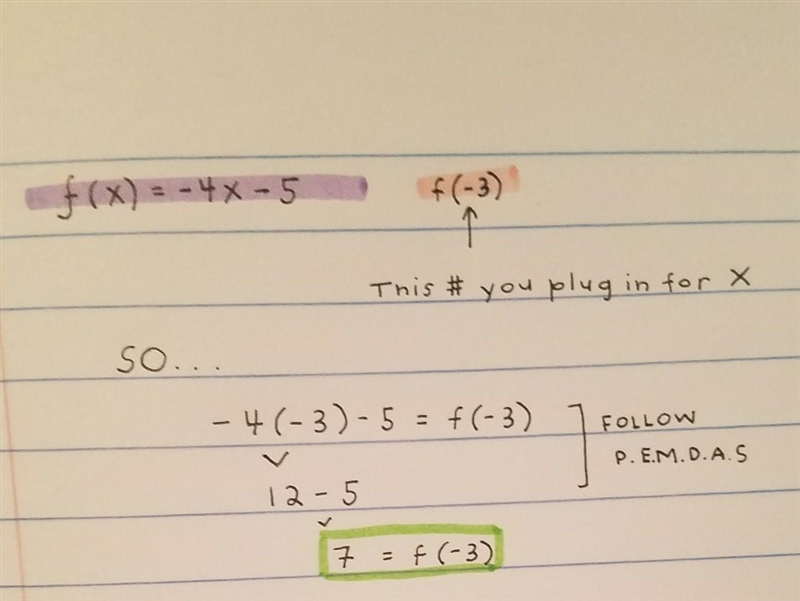 f(x) = -4x - 5 f(-3)
This # you plug in for X
SO...
-4(-3)-5 = f(-3) FOLLOW
P.E.M.D.A.S
12 - 5
7 = f(-3)